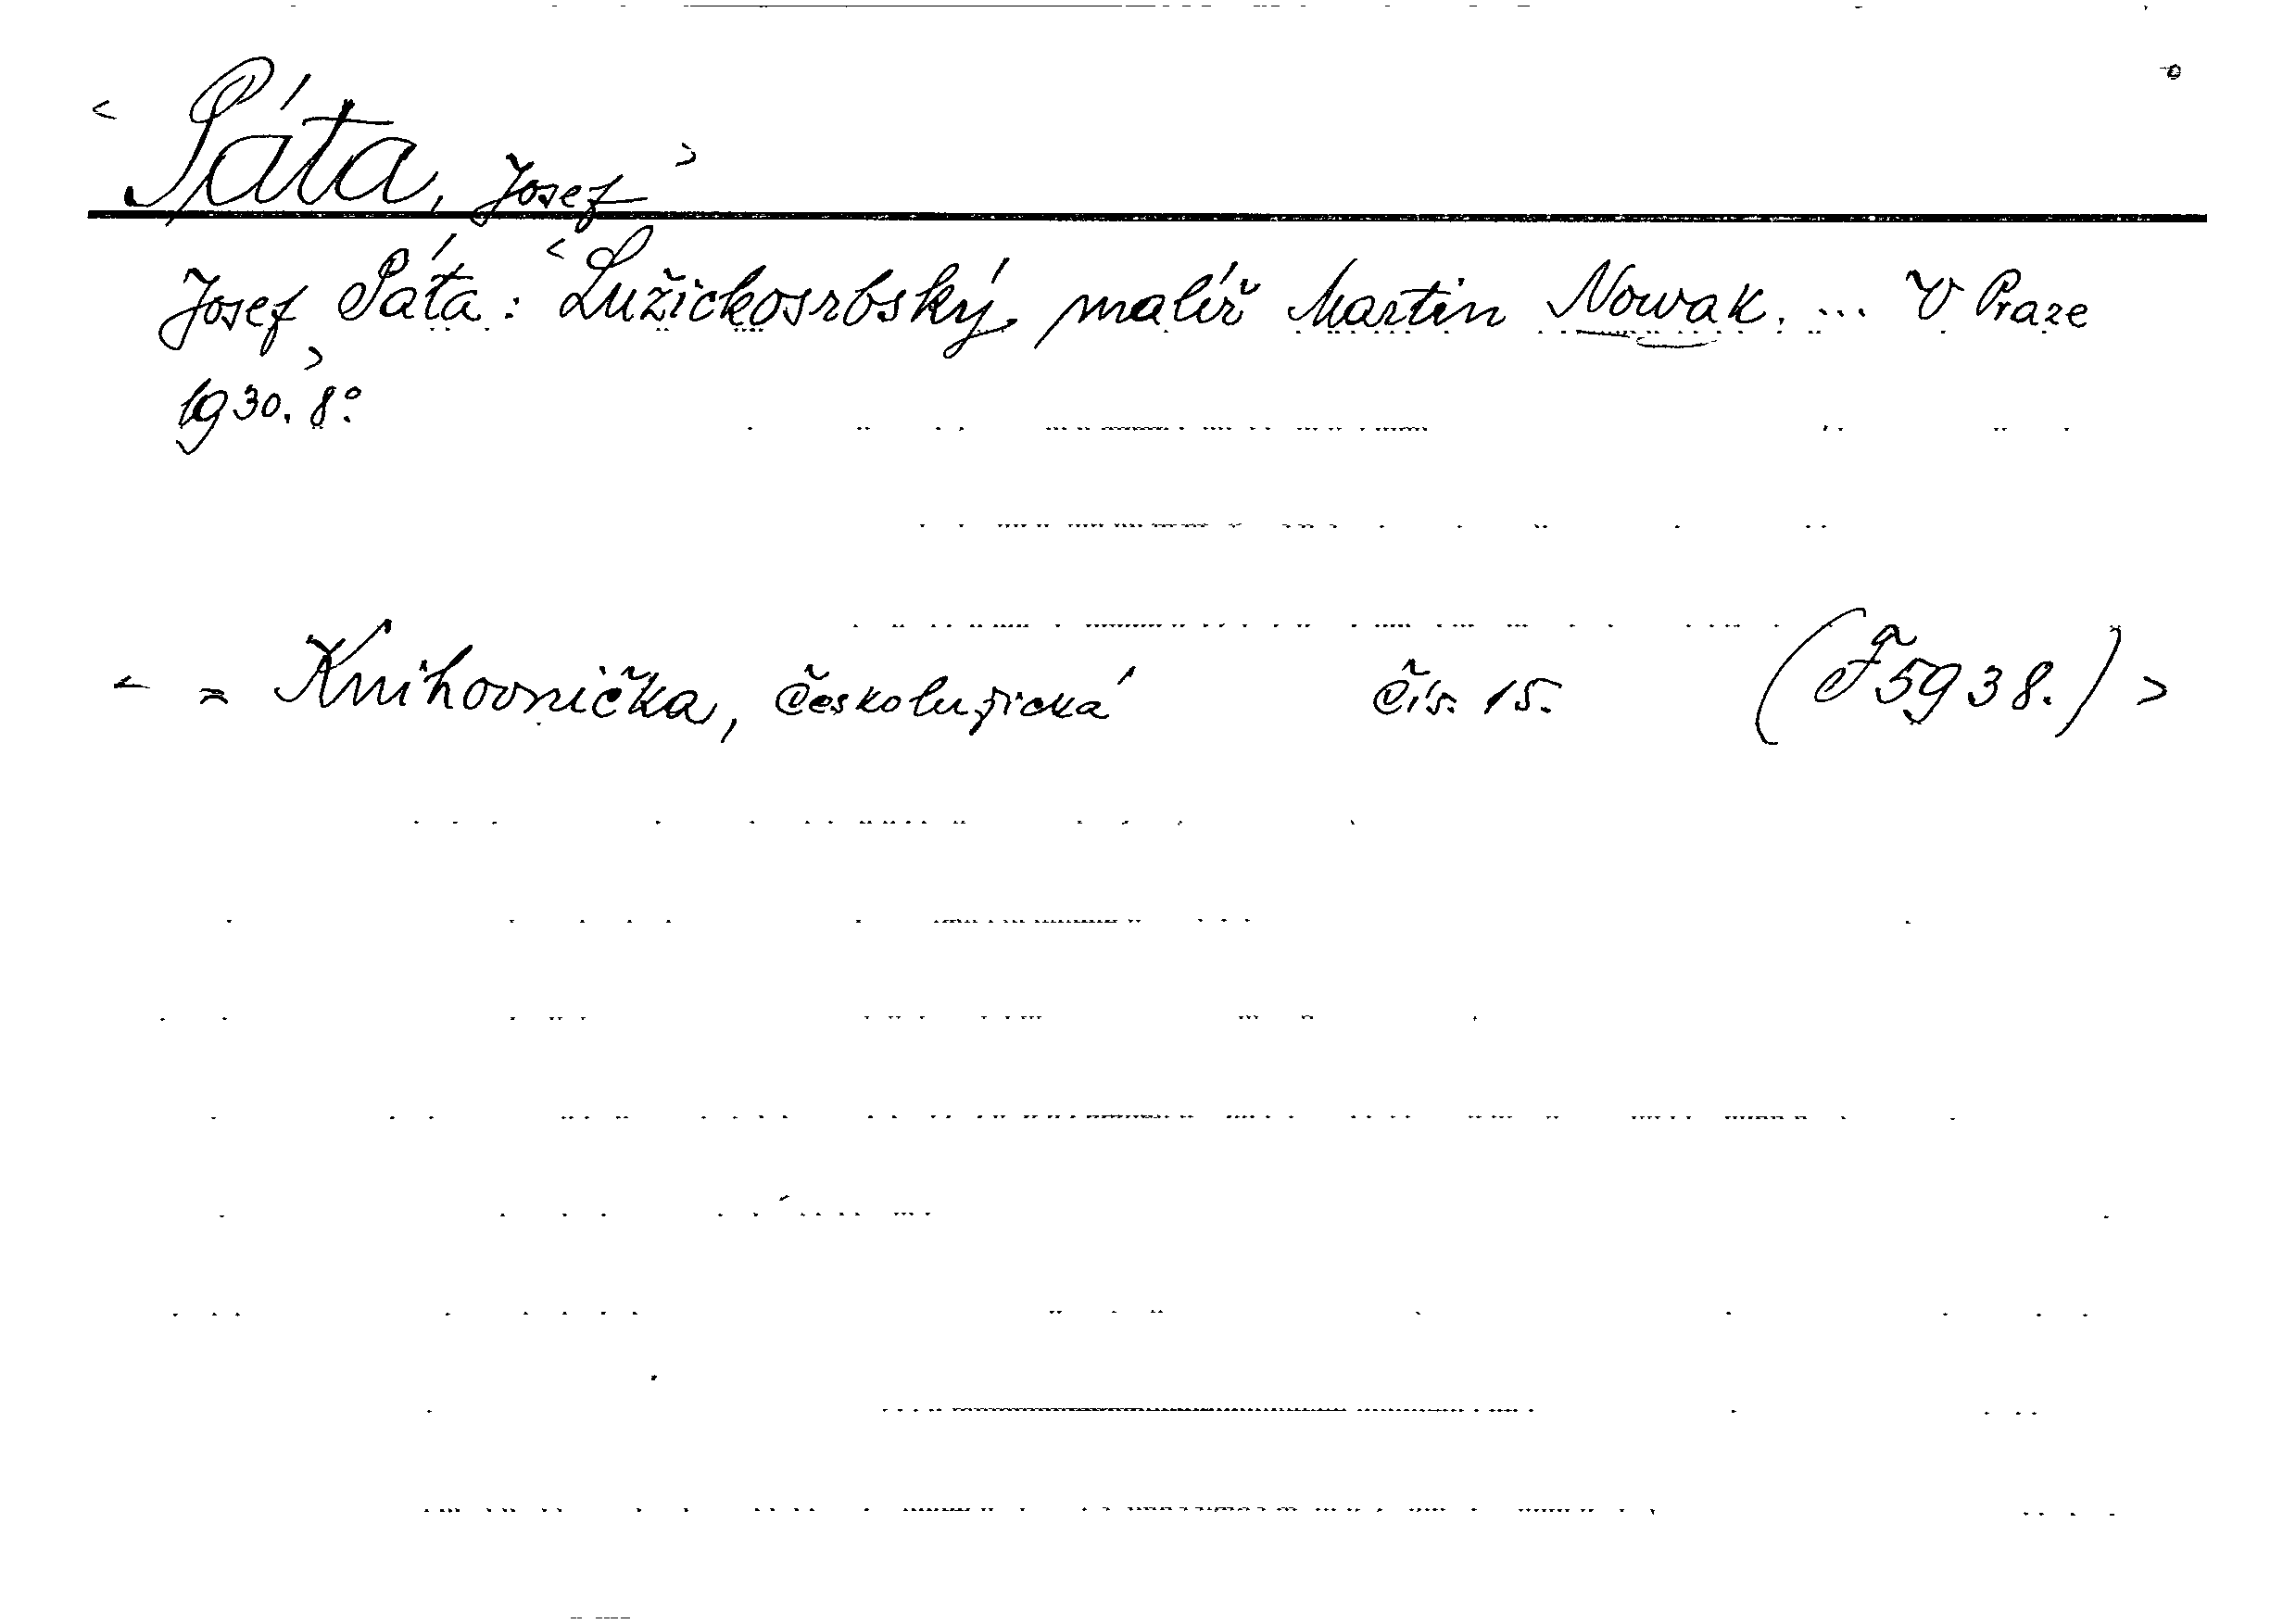 < Páta, Josef >
Josef Páta: < Lužickosrbský malíř Martin Nowak. ... V Praze
1930. > 8°.
< = Knihovnička, českolužická čís. 15. (F 5938.) >